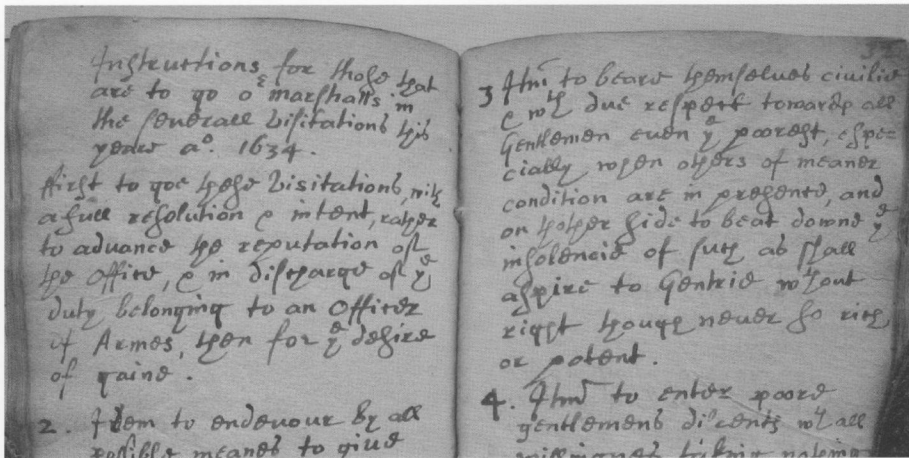 Instructions for those that
are to go oᵉ marshalls in
the severall Visitations this
yeare aᵒ. 1634.
ffirst to goe these Visitations, with
a full resolution & intent, rather
to advance the reputation of
the Office, & in discharge of yᵉ
duty belonging to an Officer
of Armes, then for yᵉ desire
of gaine.
2. Item to endevour by all
possible meanes to give
3 Itm̄ to beare themselves civilie
& wᵗʰ due respect towards all
Gentlemen even yᵉ poorest, espe=
cially when others of meaner
condition are in presence, and
on thother side to beat downe yᵉ
insolencie of such as shall
aspire to Gentrie wᵗʰout
right though never so rich
or potent.
4. Itm̄ to enter poore
gentlemens dicents wᵗʰ all
willingnes taking nothing